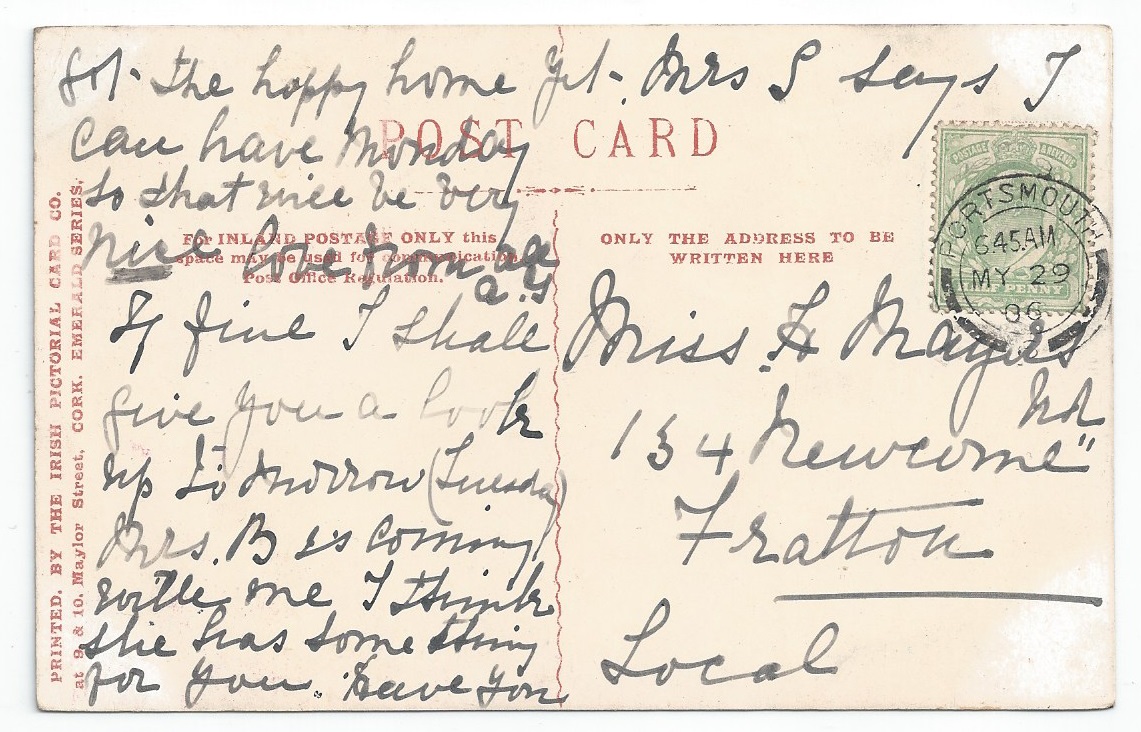 got the happy home yet. Mrs S says I
can have Monday
so that will be very
nice love from all
a.y
If fine I shall
give you a look
up To morrow (Tuesday)
Mrs. B is coming
with me I think
she has something
for you. Have you
POST CARD
For INLAND POSTAGE ONLY this
space may be used for communication.
Post Office Regulation.
ONLY THE ADDRESS TO BE
WRITTEN HERE
POSTAGE
HALF PENNY
PORTSMOUTH
645AM
MY 29
06
Miss H Mayes
134 Newcome Rd
Fratton
Local
PRINTED. BY THE IRISH PICTORIAL CARD CO.
at 9 & 10. Maylor Street, CORK. EMERALD SERIES.